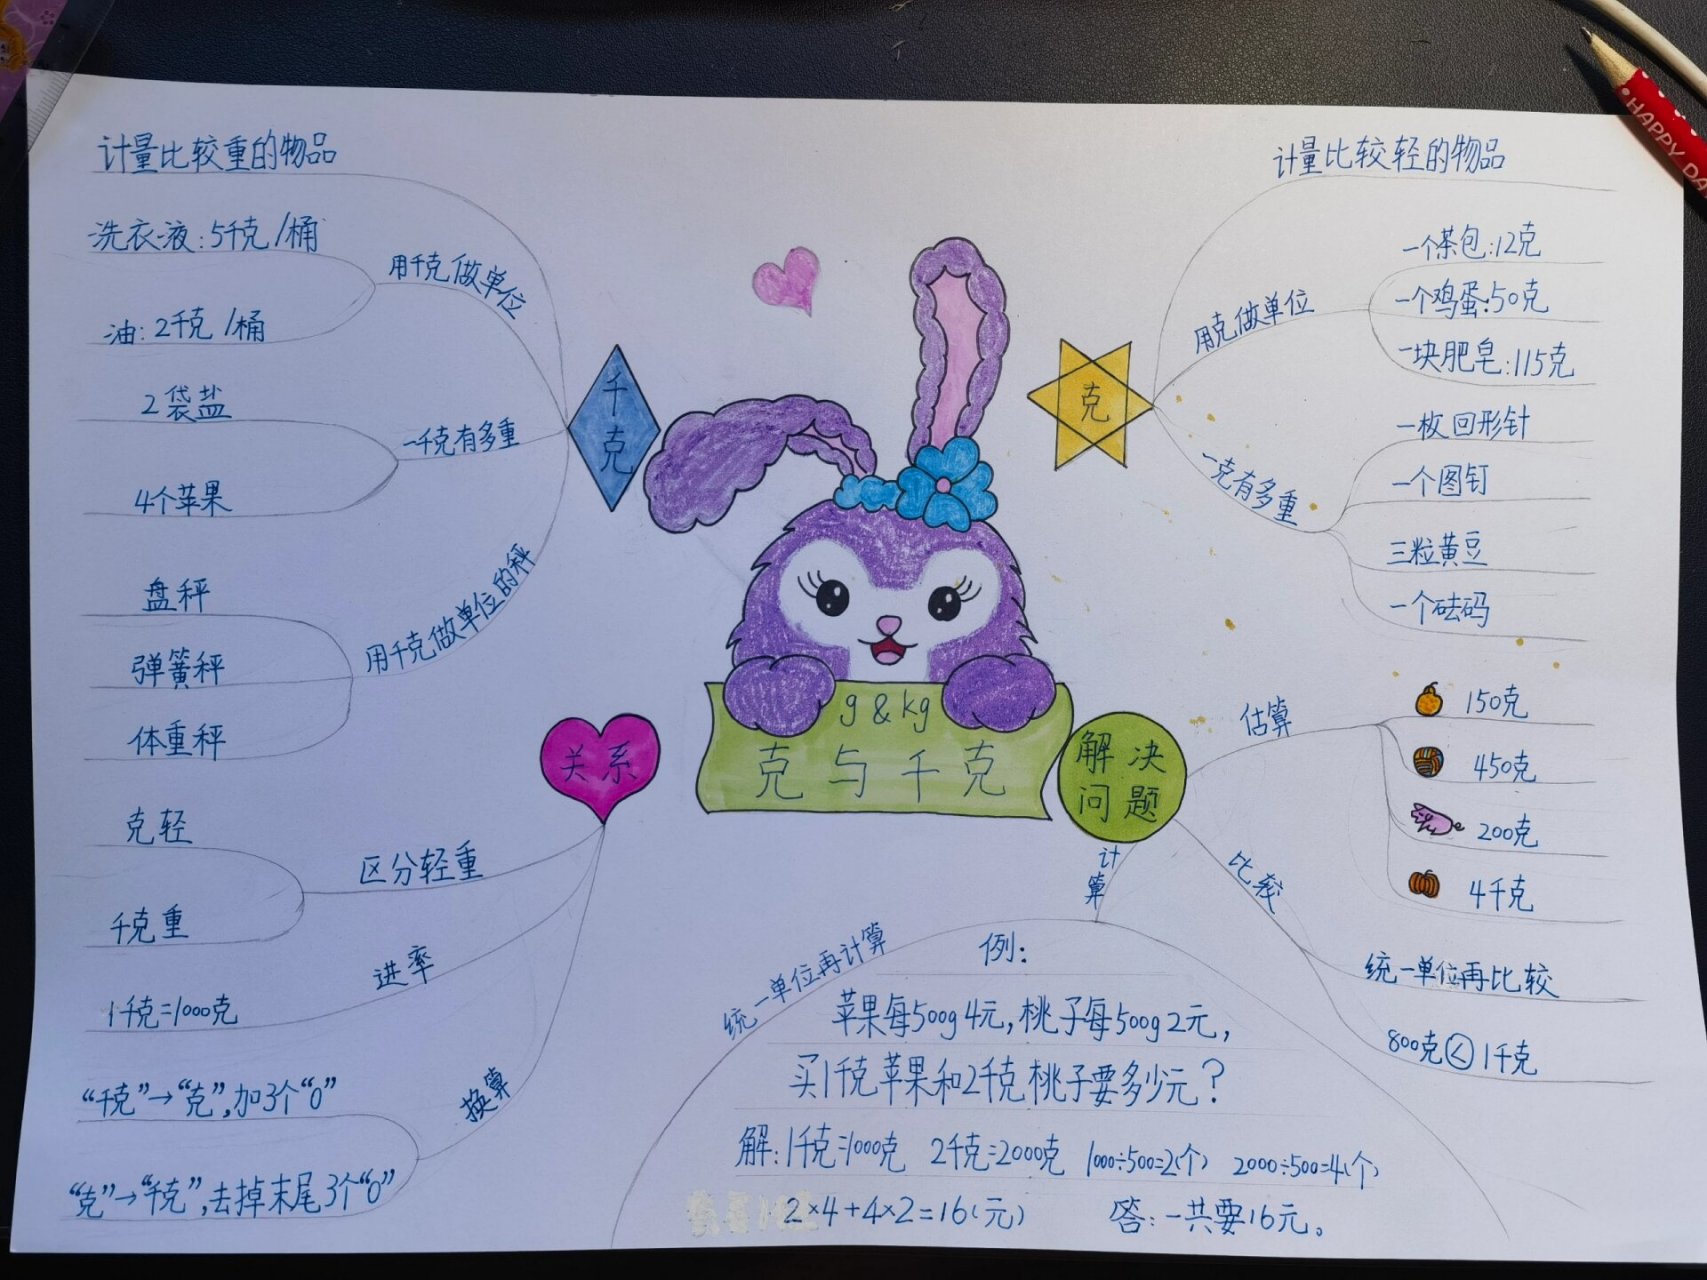 计量比较重的物品
洗衣液:5千克/桶
用千克做单位
油:2千克/桶
千克
2袋盐
一千克有多重
4个苹果
盘秤
用千克做单位的秤
弹簧秤
体重秤
关系
克轻
区分轻重
千克重
进率
1千克=1000克
换算
“千克”→“克”,加3个“0”
“克”→“千克”,去掉末尾3个“0”
g & kg
克与千克
计量比较轻的物品
克
用克做单位
一个茶包:12克
一个鸡蛋:50克
一块肥皂:115克
一克有多重
一枚回形针
一个图钉
三粒黄豆
一个砝码
解决
问题
估算
150克
450克
200克
4千克
比较
统一单位再比较
800克<1千克
计算
统一单位再计算
例:
苹果每500g4元,桃子每500g2元,
买1千克苹果和2千克桃子要多少元?
解:1千克=1000克 2千克=2000克 1000÷500=2(个) 2000÷500=4(个)
2×4+4×2=16(元) 答:一共要16元。
HAPPY DA